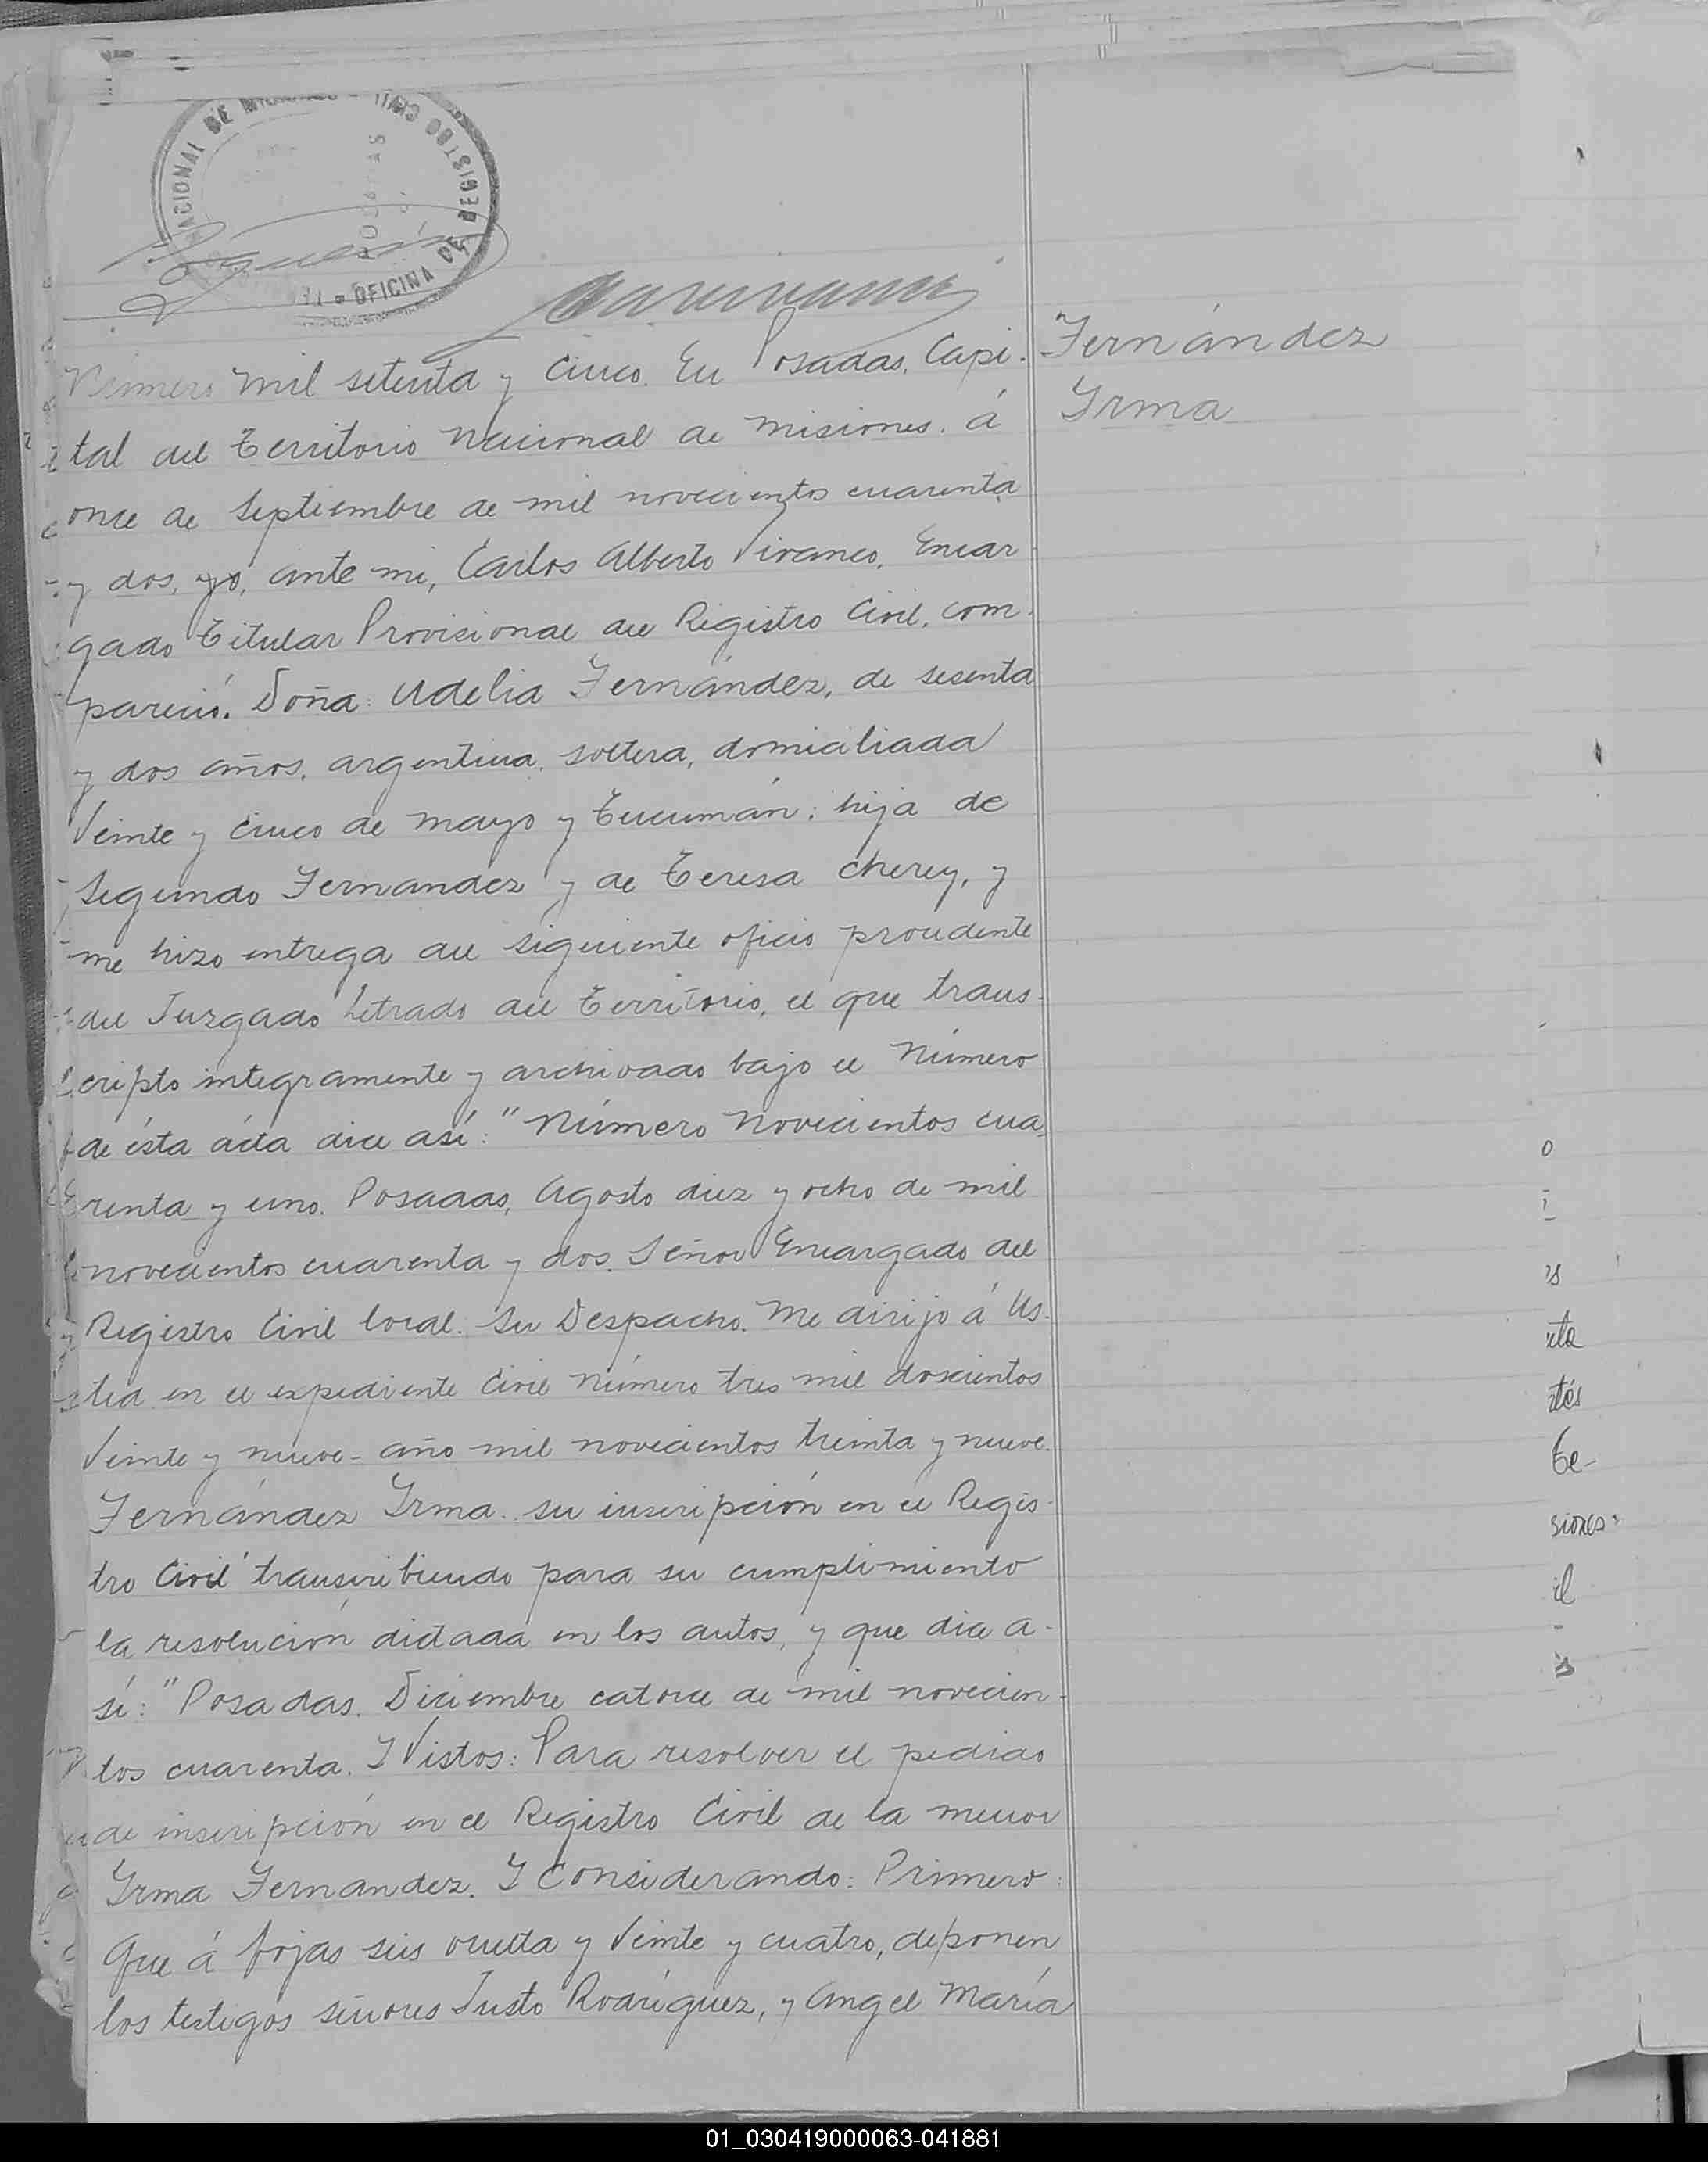 NACIONAL DE MISIONES
OFICINA DE REGISTRO CIVIL
POSADAS
Número mil setenta y cinco. En Posadas, Capi-
tal del Territorio Nacional de Misiones. á
once de Septiembre de mil novecientos cuarenta
y dos, yo, ante mi, Carlos Alberto Vivanco, Encar
gado Titular Provisional del Registro Civil, com-
pareció. Doña: Adelia Fernández, de sesenta
y dos años, argentina, soltera, domiciliada
Veinte y cinco de mayo y Tucumán; hija de
Segundo Fernandez y de Teresa Cherey, y
me hizo entrega del siguiente oficio procedente
del Juzgado Letrado del Territorio, el que trans-
cripto integramente y archivado bajo el Número
de ésta ácta dice así: "Número Novecientos cua
renta y uno. Posadas, Agosto diez y ocho de mil
novecientos cuarenta y dos. Señor Encargado del
Registro Civil local. Su Despacho. Me dirijo á Us-
ted en el expediente Civil Número tres mil doscientos
Veinte y nueve- año mil novecientos treinta y nueve.
Fernández Yrma. su inscripción en el Regis-
tro Civil" transcribiendo para su cumplimiento
la resolución dictada en los autos, y que dice a-
sí: "Posadas. Diciembre catorce de mil novecien-
tos cuarenta. Y Vistos: Para resolver el pedido
de inscripción en el Registro Civil de la menor
Yrma Fernandez. Y Considerando: Primero:
Que á fojas seis vuelta y Veinte y cuatro, deponen
los testigos señores Justo Rodríguez, y Angel María
Fernández
Yrma
01_030419000063-041881